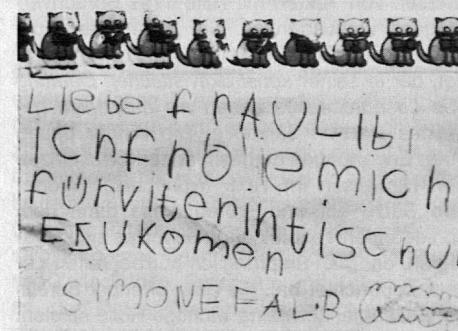 LIebe fRAULIb,
ICh fRO'emICh
fürviterIntISChU
ESZUKomen
SIMONE FALB